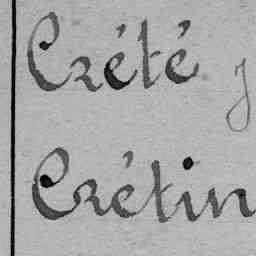 Crété j
Crétin